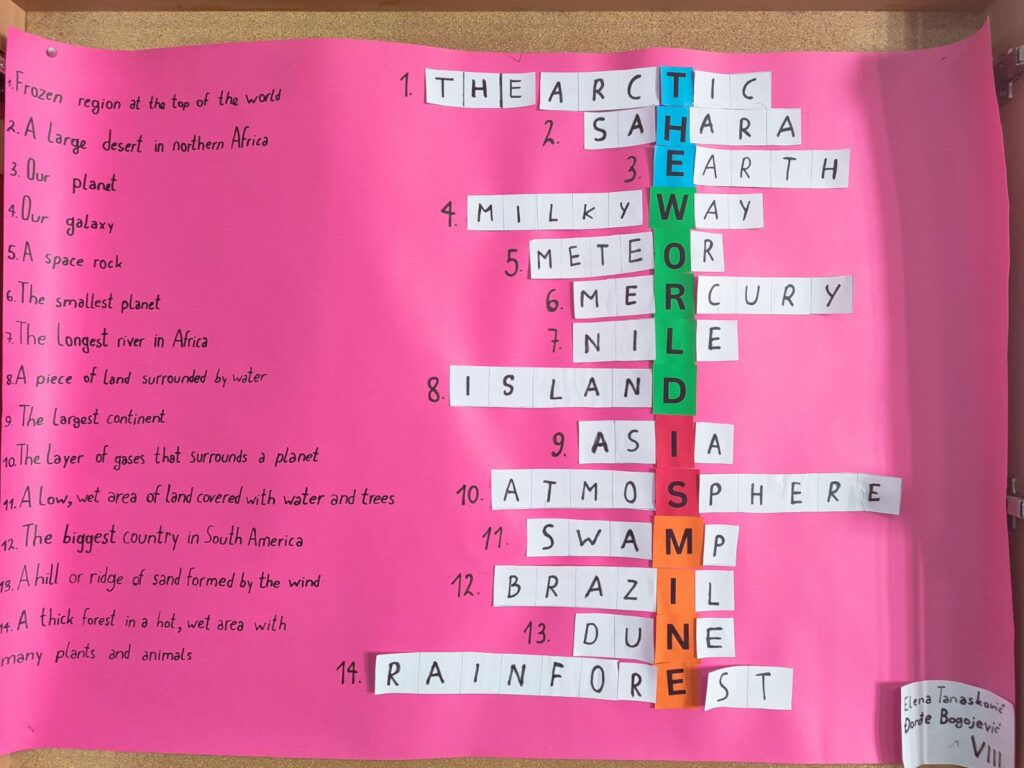 1. Frozen region at the top of the world
2. A large desert in northern Africa
3. Our planet
4. Our galaxy
5. A space rock
6. The smallest planet
7. The longest river in Africa
8. A piece of land surrounded by water
9. The largest continent
10. The layer of gases that surrounds a planet
11. A low, wet area of land covered with water and trees
12. The biggest country in South America
13. A hill or ridge of sand formed by the wind
14. A thick forest in a hot, wet area with
many plants and animals
1. THE ARCTIC
2. SAHARA
3. EARTH
4. MILKY WAY
5. METEOR
6. MERCURY
7. NILE
8. ISLAND
9. ASIA
10. ATMOSPHERE
11. SWAMP
12. BRAZIL
13. DUNE
14. RAINFOREST
Elena Tanasković
Đorđe Bogojević
VIII